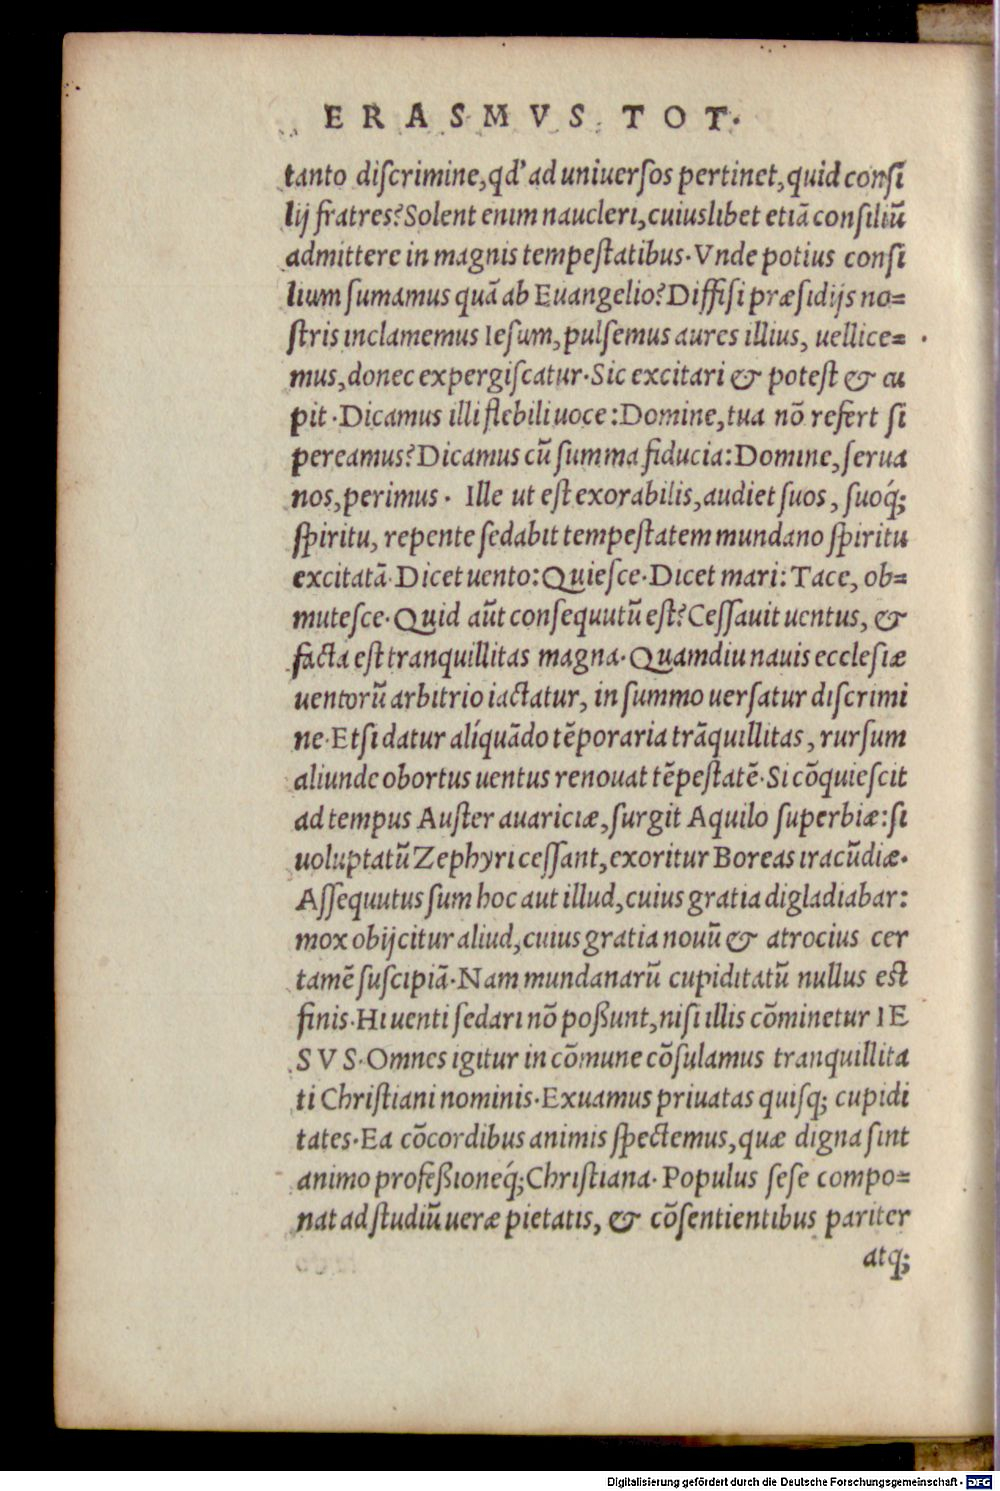 ERASMVS TOT.
tanto discrimine, qd' ad uniuersos pertinet, quid consi
lij fratres? Solent enim naucleri, cuiuslibet etiã consiliũ
admittere in magnis tempestatibus. Vnde potius consi
lium sumamus quã ab Euangelio? Diffisi præsidijs no=
stris inclamemus Iesum, pulsemus aures illius, uellice=
mus, donec expergiscatur. Sic excitari & potest & cu
pit. Dicamus illi flebili uoce: Domine, tua nõ refert si
pereamus? Dicamus cũ summa fiducia: Domine, serua
nos, perimus. Ille ut est exorabilis, audiet suos, suoq́;
spiritu, repente sedabit tempestatem mundano spiritu
excitatã. Dicet uento: Quiesce. Dicet mari: Tace, ob=
mutesce. Quid aũt consequutũ est? Cessauit uentus, &
facta est tranquillitas magna. Quamdiu nauis ecclesiæ
uentorũ arbitrio iactatur, in summo uersatur discrimi
ne. Etsi datur alíquãdo tẽporaria trãquillitas, rursum
aliunde obortus uentus renouat tẽpestatẽ. Si cõquiescit
ad tempus Auster auariciæ, surgit Aquilo superbiæ: si
uoluptatũ Zephyri cessant, exoritur Boreas iracũdiæ.
Assequutus sum hoc aut illud, cuius gratia digladiabar:
mox obijcitur aliud, cuius gratia nouũ & atrocius cer
tamẽ suscipiã. Nam mundanarũ cupiditatũ nullus est
finis. Hi uenti sedari nõ poßunt, nisi illis cõminetur IE
SVS. Omnes igitur in cõmune cõsulamus tranquillita
ti Christiani nominis. Exuamus priuatas quisq; cupidi
tates. Ea cõcordibus animis spectemus, quæ digna sint
animo profeßioneq́; Christiana. Populus sese compo=
nat ad studiũ ueræ pietatis, & cõsentientibus pariter
atq;
Digitalisierung gefördert durch die Deutsche Forschungsgemeinschaft - DFG